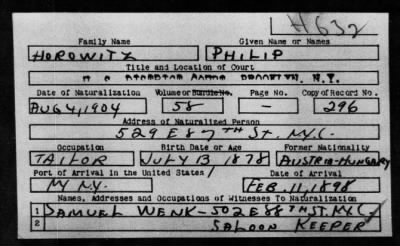 H632
Family Name Given Name or Names
HOROWITZ PHILIP
Title and Location of Court
U.S. DISTRICT COURT BROOKLYN, N.Y.
Date of Naturalization Volume or Bundle No. Page No. Copy of Record No.
AUG 4, 1904 58 — 296
Address of Naturalized Person
529 E 87TH ST. N.Y.C.
Occupation Birth Date or Age Former Nationality
TAILOR JULY 13, 1878 AUSTRIA-HUNGARY
Port of Arrival in the United States Date of Arrival
NY N.Y. FEB. 11, 1898
Names, Addresses and Occupations of Witnesses To Naturalization
1 SAMUEL WENK - 502 E 88TH ST. N.Y.C.
2 SALOON KEEPER